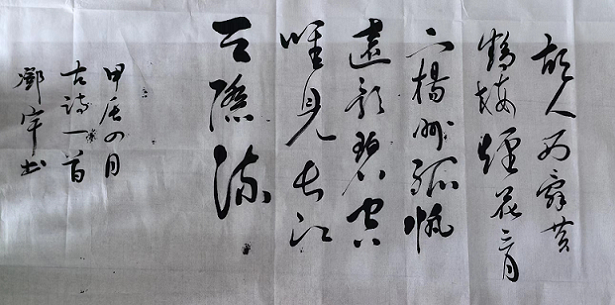 故人西辭黄
鶴樓煙花三月
下楊州孤帆
遠影碧空尽
唯見长江
天際流
甲辰四月
古詩一首
鄧宇书